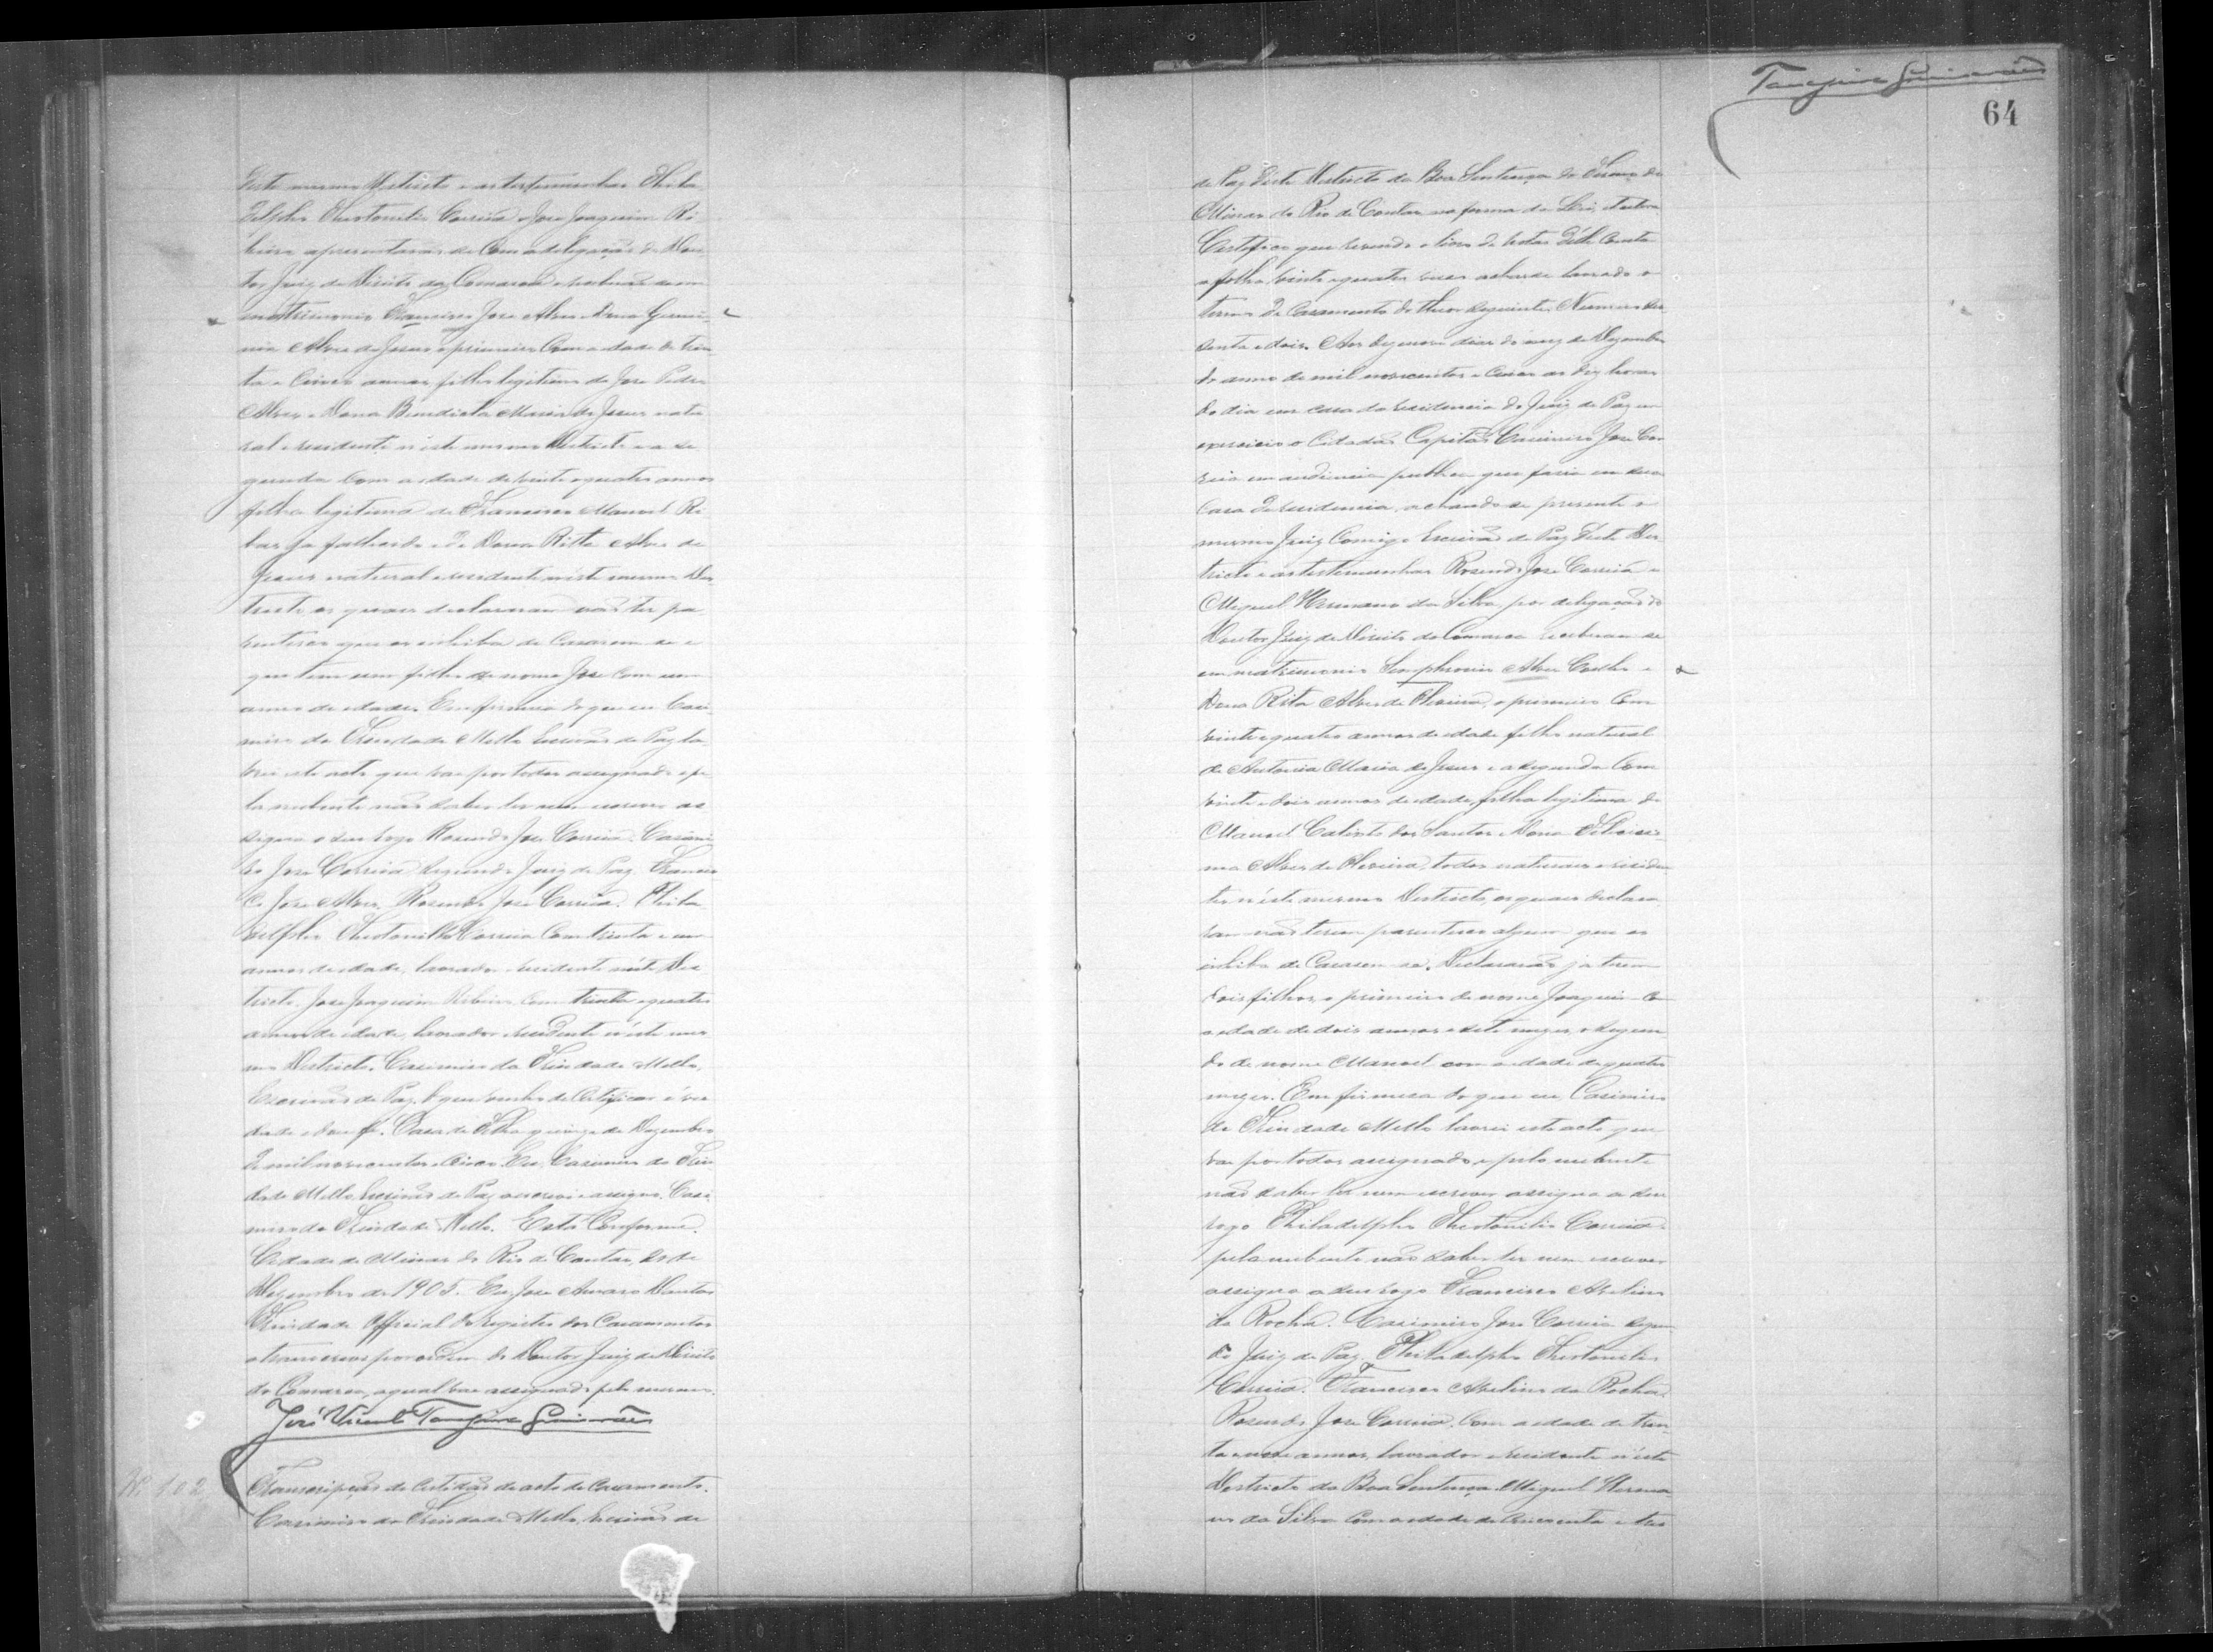 deste mesmo Districto e as testemunhas Phila
delpho Theotonilio Correia e Jose Joaquim Ri
beiro apresentarão se com a delegação do Dou
tor Juiz de Direito da Comarca e receberão se em
matrimonio Francisco Jose Alves e Dona Gumi
nia Alves de Jesus o primeiro com a idade de trin
ta e cinco annos filho legitimo de Jose Pedro
Alves e Dona Benedicta Maria de Jesus natu
ral e residente n'este mesmo Districto e a se
gunda com a idade de vinte e quatro annos
filha legitima de Francisco Manoel Ri
bas ja fallecido e de Dona Ritta Alves de
Jesus natural e residente n'este mesmo Dis
tricto os quaes declararam não ter pa
rentesco que os inhiba de casarem se e
que tem um filho de nome Jose com um
anno de idade. Em firmeza do que eu Casi
miro da Trindade Mello Escrivão de Paz la
vrei este acto que vae por todos assignado e pe
la nubente não saber ler nem escrever as
signa o seu rogo Rosendo Jose Correia. Casimi
ro Jose Correia segundo Juiz de Paz. Francis
co Jose Alves. Rosendo José Correia. Phila
delpho Theotonilio Correia com trinta e um
annos de idade, lavrador residente n'este Dis
tricto. Jose Joaquim Ribeiro com trinta e quatro
annos de idade, lavrador e residente n'este mes
mo Districto. Casimiro da Trindade Mello,
Escrivão de Paz. O que venho de certificar é ver
dade e dou fé. Boa Sentença quinze de Dezembro
de mil novecentos e cinco. Eu, Casimiro da Trin
dade Mello, Escrivão de Paz o escrevi e assigno. Casi
miro da Trindade Mello. Está Conforme.
Cidade de Minas do Rio de Contas, 20 de
Dezembro de 1905. Eu, Jose Amaro Dantas
Trindade Official do registro dos Casamentos
o transcrevi por ordem do Doutor Juiz de Direito
da Comarca, a qual vae assignado pelo mesmo.
José Vicente Tanajura Guimarães
Nº 102
Transcripção de certidão de acto de casamento.
Casimiro da Trindade Mello, Escrivão de
Tanajura Guimarães
64
de Paz deste Districto da Boa Sentença do Termo de
Minas do Rio de Contas na forma da Lei, etc
Certifico que revendo o livro de notas d'elle consta
a folha vinte e quatro verso achar-se lavrado o
termo de casamento do theor seguinte. Numero ses
senta e dois. Aos dezenove dias do mez de Dezembro
do anno de mil novecentos e cinco as dez horas
do dia em casa da residencia do Juiz de Paz em
exercicio o Cidadão Capitão Casimiro Jose Cor
reia em audiencia publica que fazia em sua
casa de residencia, achando-se presente o
mesmo Juiz comigo Escrivão de Paz deste Dis
tricto e as testemunhas Rosendo Jose Correia e
Miguel Hermano da Silva, por delegação do
Doutor Juiz de Direito da Comarca receberam se
em matrimonio Simphronio Alves Coelho e
Dona Rita Alves de Oliveira, o primeiro com
vinte e quatro annos de idade filho natural
de Antonia Maria de Jesus e a segunda com
vinte e dois annos de idade, filha legitima de
Manoel Calixto dos Santos e Dona
ma Alves de Oliveira, todos naturaes e residen
tes n'este mesmo Districto, os quaes declara
ram não terem parentesco algum que os
inhiba de casarem se. Declararão ja terem
dois filhos, o primeiro de nome Joaquim com
a idade de dois annos e sete mezes, o segun
do de nome Manoel com a idade de quatro
mezes. Em firmeza do que eu, Casimiro
da Trindade Mello lavrei este acto que
vae por todos assignado, e pelo nubente
não saber ler nem escrever assigna a seu
rogo Philadelpho Theotonilio Correia,
pela nubente não saber ler nem escrever
assigna a seu rogo Francisco Avelino
da Rocha. Casimiro Jose Correia segun
do Juiz de Paz. Philadelpho Theotonilio
Correia. Francisco Avelino da Rocha.
Rosendo Jose Correia, com a idade de trin
ta e nove annos, lavrador e residente n'este
Districto da Boa Sentença. Miguel Herma
no da Silva com a idade de cincoenta e tres